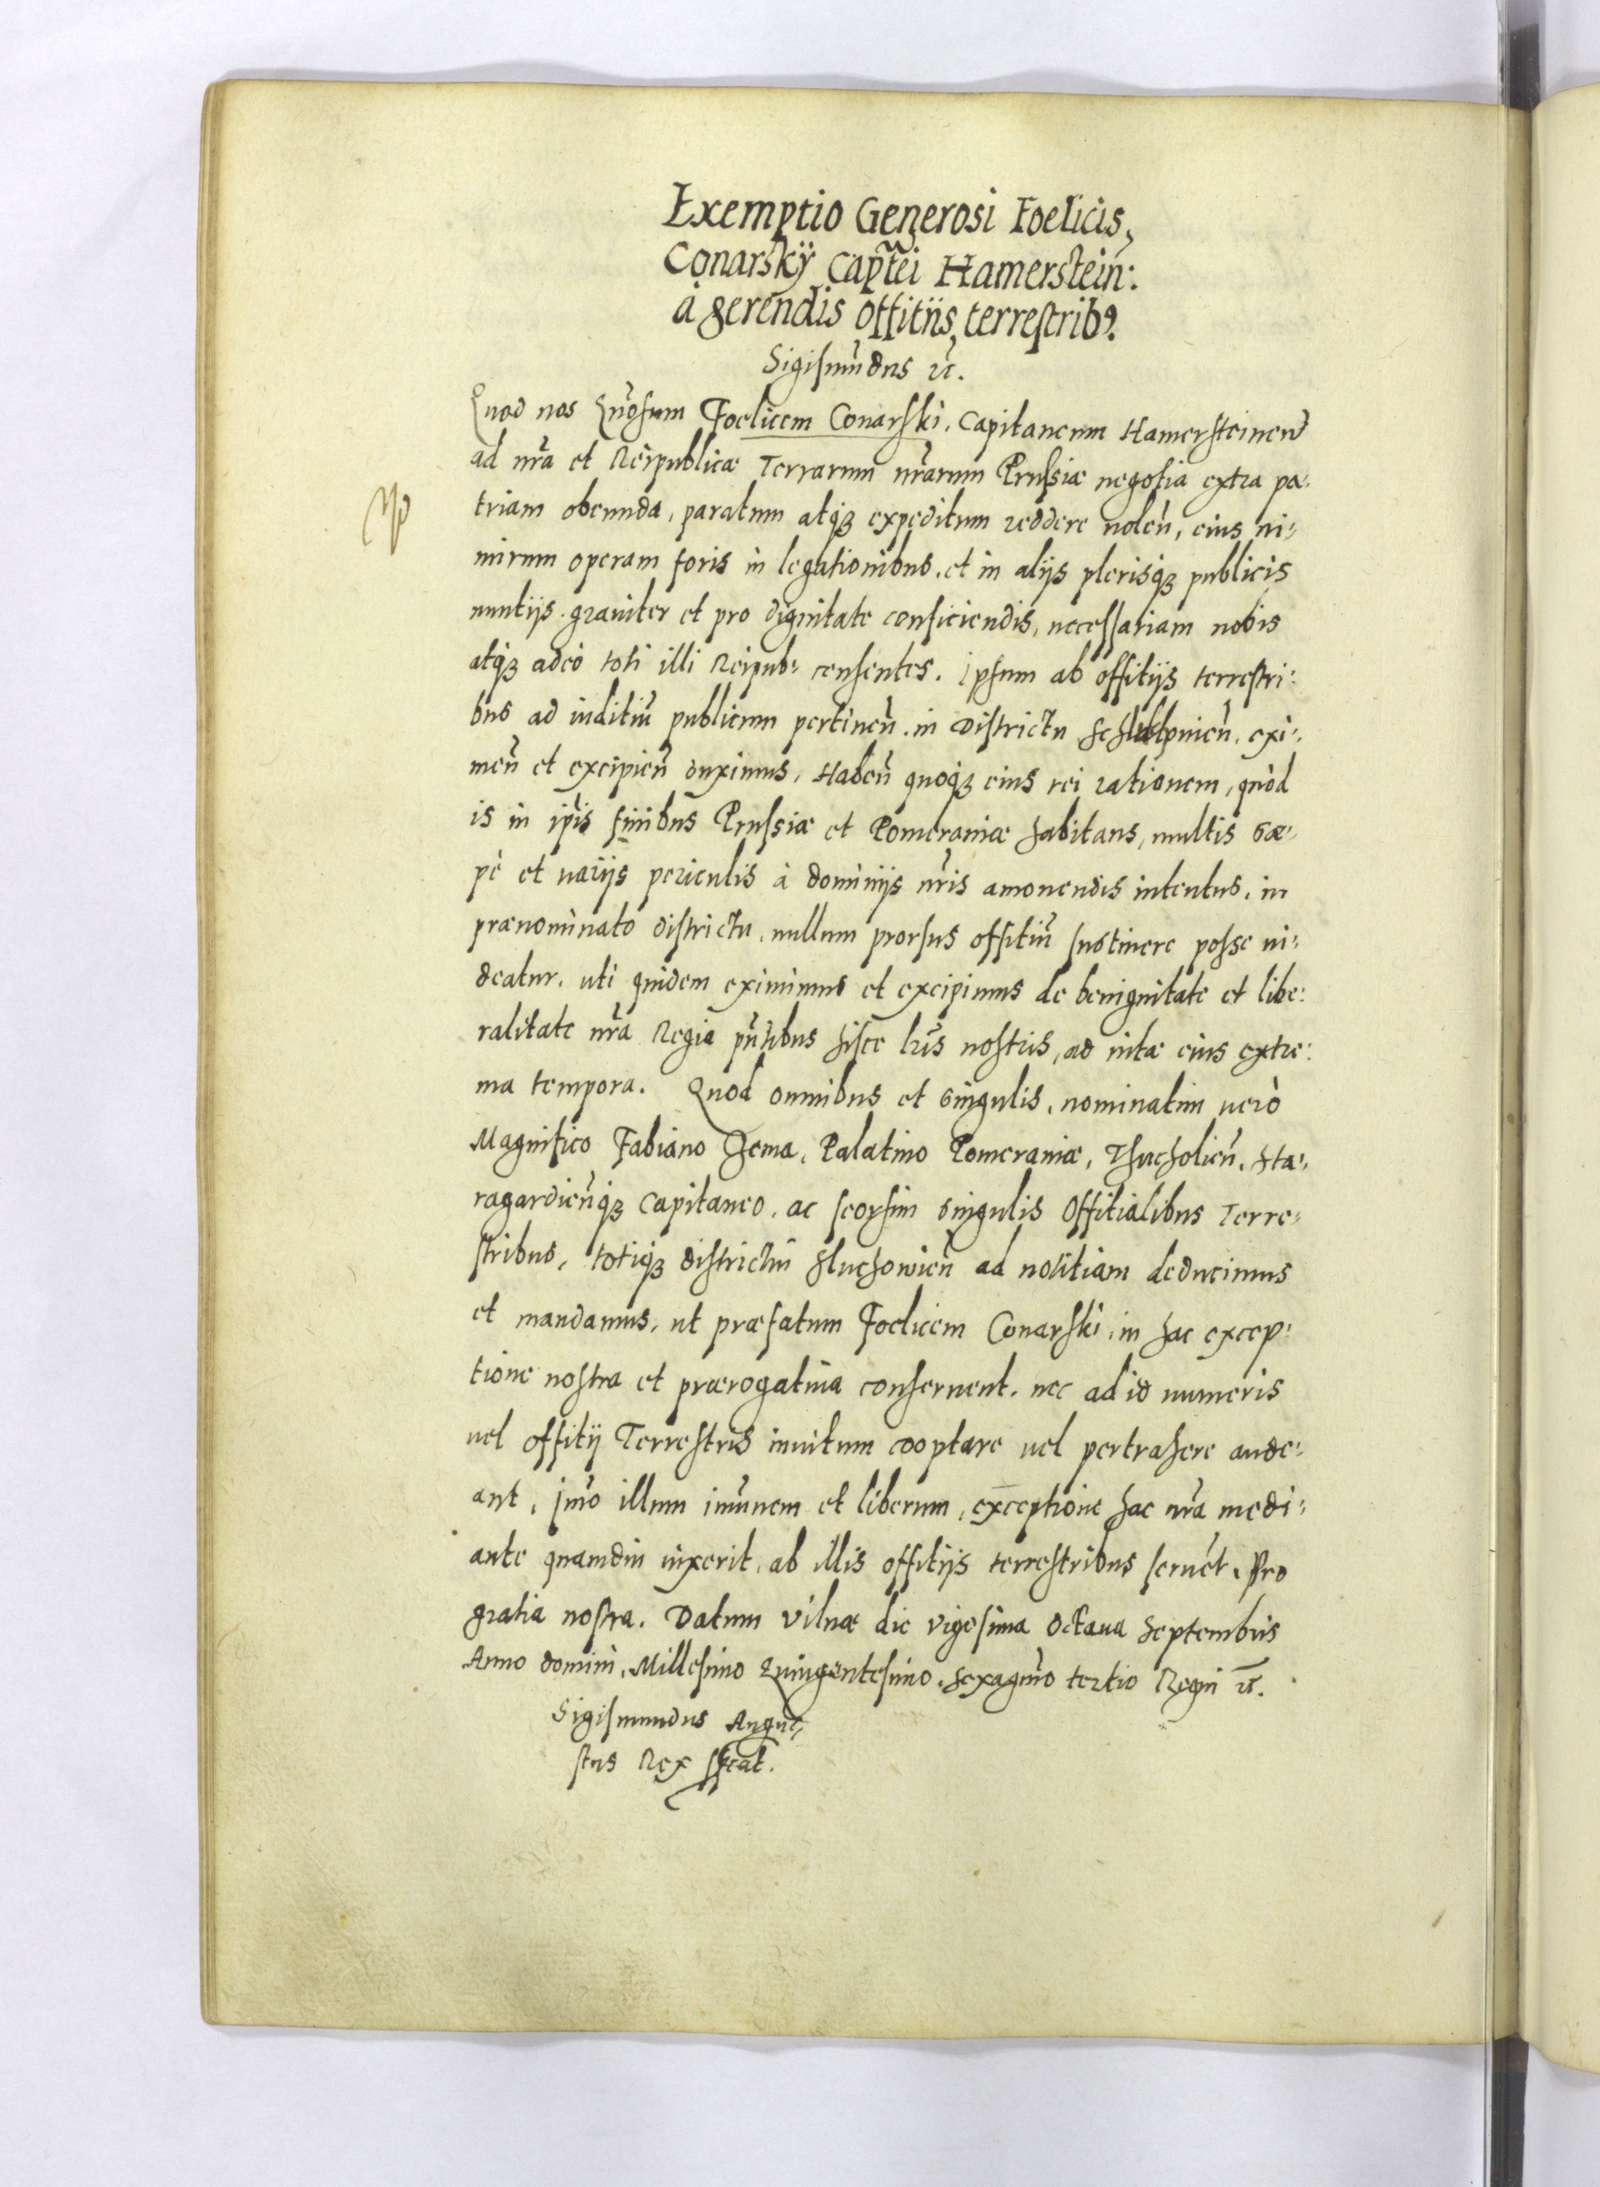 Exemptio Generosi Foelicis,
Conarskÿ Cap̃tei Hamerstein:
à gerendis offitiis terrestrib9.
Sigismũdus ꝛc̃.
Quod nos Gñosum Foelicem Conarski, Capitaneum Hamersteineñ
ad nr̃a et Reipublicæ Terrarum nr̃arum Prussiæ negotia extra pa:
triam obeunda, paratum atqꝫ expeditum reddere uoleñ, eius ni:
mirum operam foris in legationibus, et in alijs plerisqꝫ publicis
nuntijs grauiter et pro dignitate conficiendis, necessariam nobis
atqꝫ adeò toti illi Reipub: censentes. Ipsum ab offitijs terrestri:
bus ad iuditiũ publicum pertineñ, in Districtu exi:
meñ et excipieñ duximus, Habeñ quoqꝫ eius rei rationem, quòd
is in ip̃is finibus Prussiæ et Pomeraniæ habitans, multis sæ:
pè et uarijs periculis à dominijs nr̃is amouendis intentus, in
prænominato districtu, nullum prorsus offitiũ sustinere posse ui:
deatur, uti quidem eximimus et excipimus de benignitate et libe:
ralitate nr̃a Regia pñtibus hisce lr̃is nostris, ad uitæ eius extre:
ma tempora. Quod omnibus et singulis, nominatim uerò
Magnifico Fabiano Czema, Palatino Pomeraniæ, Thucholieñ, Sta:
ragardieñqꝫ Capitaneo, ac seorsim singulis Offitialibus Terre:
stribus, totiqꝫ districtui Sluchowieñ ad notitiam deducimus
et mandamus, ut præfatum Foelicem Conarski, in hac excep:
tione nostra et prærogatiua conseruent, nec ad id muneris
uel offitij Terrestris inuitum cooptare uel pertrahere aude:
ant, imõ illum imũnem et liberum, exceptione hac nr̃a medi:
ante quamdiu uixerit, ab illis offitijs terrestribus seruẽt, Pro
gratia nostra. Datum Vilnæ die Vigesima Octaua Septembris
Anno domini, Millesimo Quingentesimo, Sexagm̃o tertio Regni ꝛc̃.
Sigismundus Augu:
stus Rex sscat.